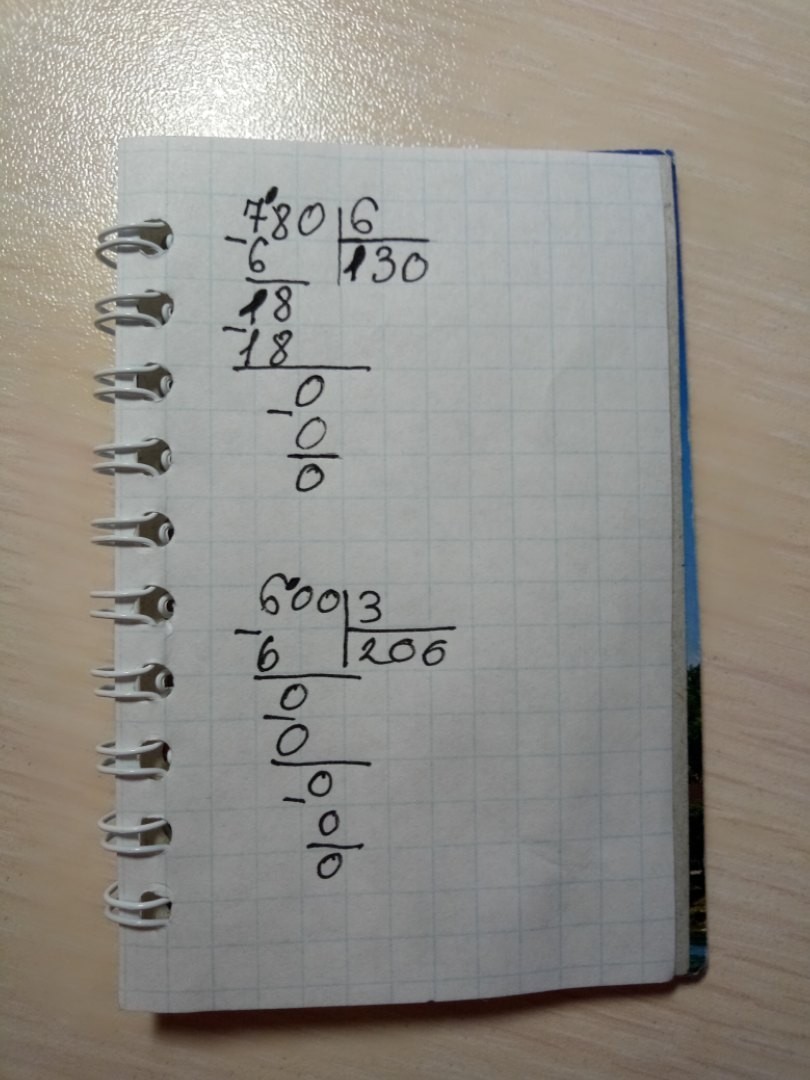 780 6
- 6 130
18
- 18
0
- 0
0
600 3
- 6 206
0
- 0
0
- 0
0